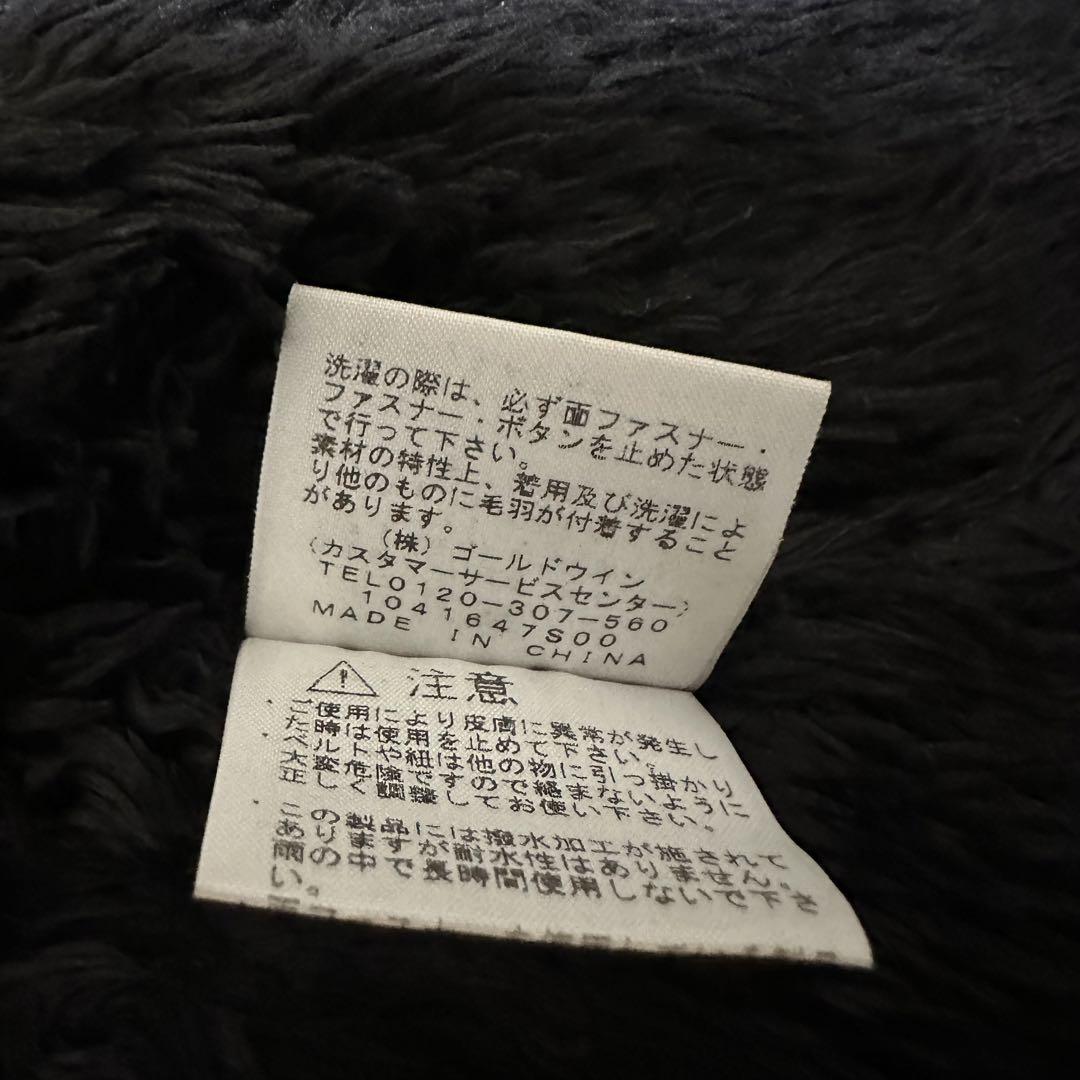 洗濯の際は、必ず面ファスナー・
ファスナー・ボタンを止めた状態
で行って下さい。
素材の特性上、着用及び洗濯によ
り他のものに毛羽が付着すること
があります。
(株)ゴールドウイン
(カスタマーサービスセンター)
TEL0120-307-560
1041647S00
MADE IN CHINA
注意
ご使用により皮膚に異常が発生し
た時は使用を止めて下さい。
ベルトや紐は他の物に引っ掛かり
大変危険ですので絡まないように
正しく調整してお使い下さい。
この製品には撥水加工が施されて
ありますが耐水性はありません。
雨の中で長時間使用しないで下さ
い。